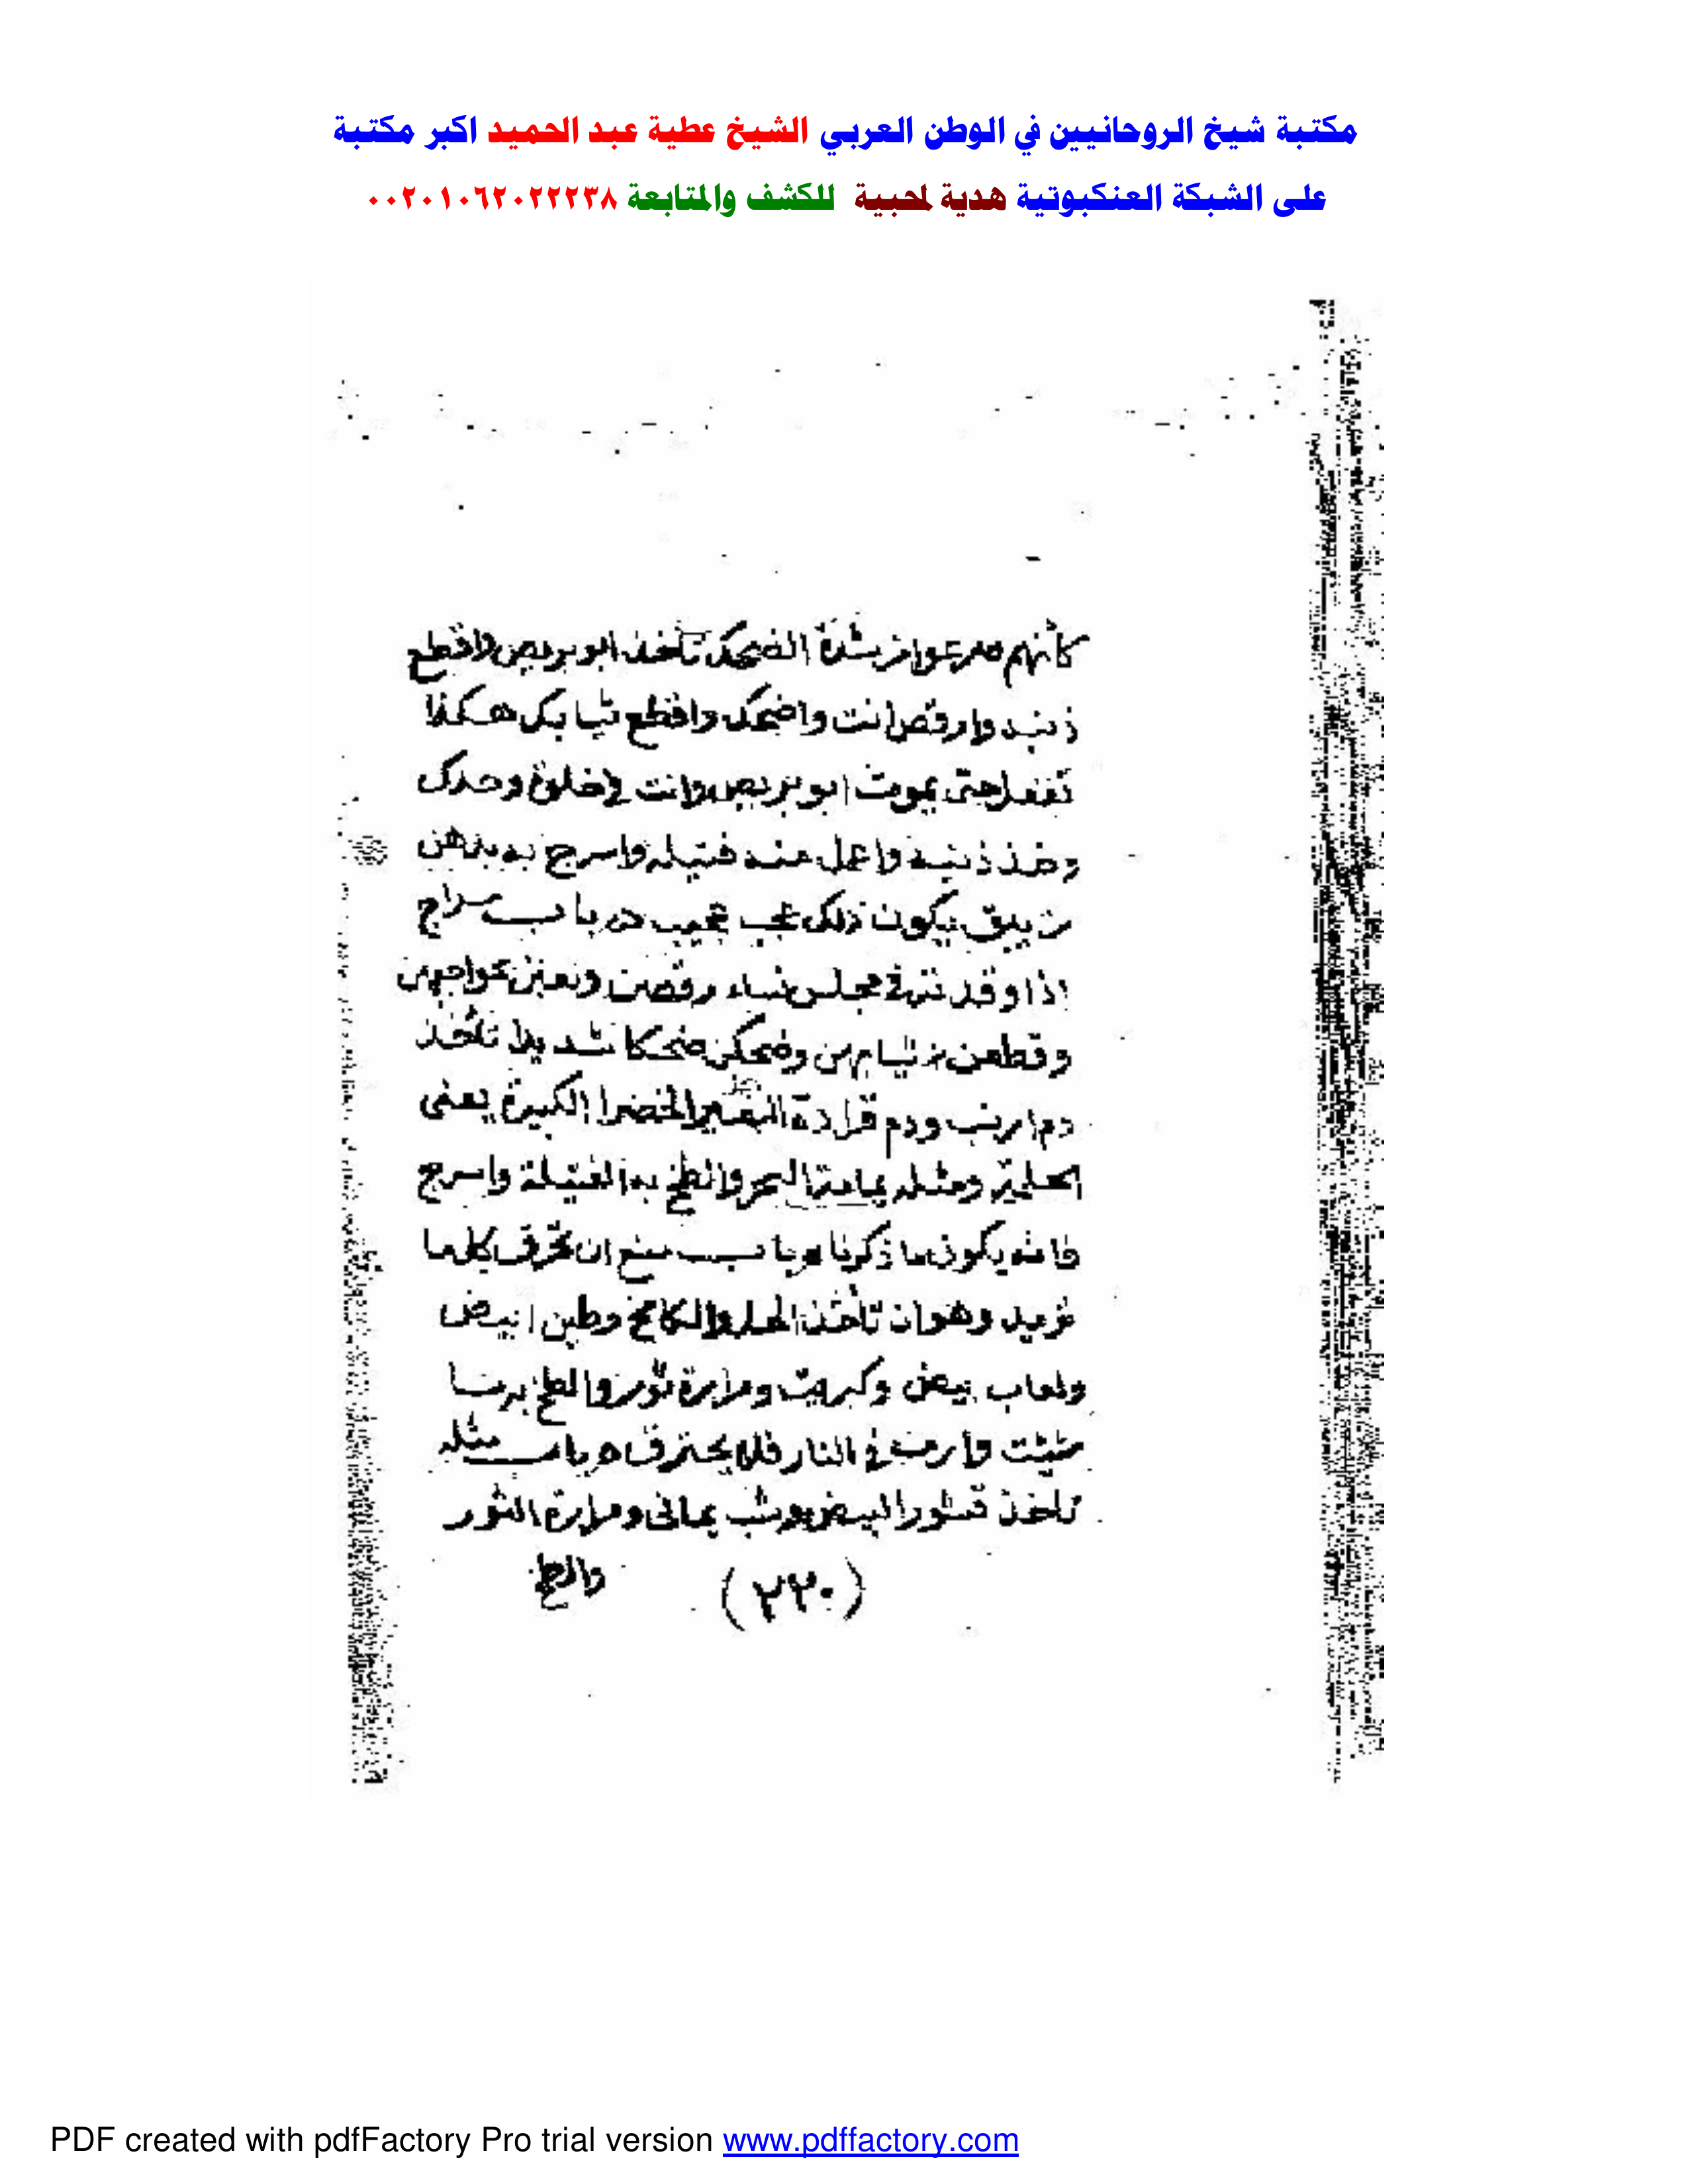 مكتبة شيخ الروحانيين في الوطن العربي الشيخ عطية عبد الحميد اكبر مكتبة
على الشبكة العنكبوتية هدية لمحبية للكشف والمتابعة ٠٠٢٠١٠٦٢٠٢٢٢٣٨
كأنهم من شدة الضحك تأخذ ابو بريص واقطع
ذنبه وارقص انت واضحك واقطع ثيابك هكذا
تفعل حتى يموت ابو بريص وانت في خلوة وحدك
وخذ ذنبه واعمل منه فتيله واسرج به بدهن
زيبق يكون ذلك عجب عجيب باب سراج
اذا وقدته في مجلس نساء رقصن بحواجبهن
وقطعن ثيابهن وضحكن ضحكا شديدا تأخذ
دم ارنب ودم قرادة الخضرا الكبيرة يعنى
الحلمة ومثله والطخ به الفتيلة واسرج
فانه يكون ما ذكرنا باب منع ان تحرق كل ما
تريد وهو ان تأخذ الخل والكامخ وطين ابيض
ولعاب بيض وكبريت ومرارة ثور والطخ بر ما
شيئت وارمه في النار فلا يحترق باب مثله
تاخذ قشور البيض وشب يمانى ومرارة الثور
(٢٢٠) والطخ
PDF created with pdfFactory Pro trial version www.pdffactory.com